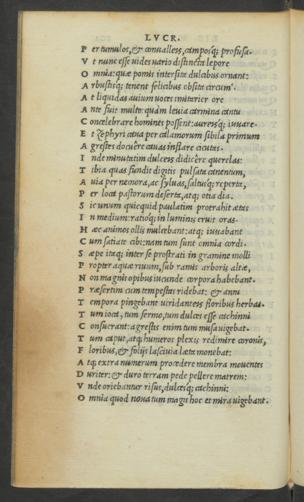 LVCR.
P er tumulos, & conualleis, camposq; profusa.
V t nunc esse uides uario distincta lepore
O mnia: quæ pomis intersita dulcibus ornant:
A rbustisq; tenent felicibus obsita circum.
A t liquidas auium uoces imitarier ore
A nte fuit multo: quàm leuia carmina cantu
C oncelebrare homines possent: aureisq; iuuare.
E t Zephyri caua per calamorum sibila primum
A grestes docuêre cauas inflare cicutas.
I nde minutatim dulceis didicêre querelas:
T ibia quas fundit digitis pulsata canentum,
A uia per nemora, ac syluas, saltusq; reperta,
P er loca pastorum deserta, atq; otia dia.
S ic unum quicquid paulatim protrahit ætas
I n medium: ratioq; in luminis eruit oras.
H æc animos ollis mulcebant: atq; iuuabant
C um satiate cibi: nam tum sunt omnia cordi.
S æpe itaq; inter se prostrati in gramine molli
P ropter aquæ riuum, sub ramis arboris altæ,
N on magnis opibus iucunde corpora habebant.
P ræsertim cum tempestas ridebat: & anni
T empora pingebant uiridanteis floribus herbas.
T um ioca, tum sermo, tum dulces esse cachinni
C onsuerant: agrestis enim tum musa uigebat.
T um caput, atq; humeros plexis redimire coronis,
F loribus, & folijs lasciuia læta monebat:
A tq; extra numerum procedere membra mouentes
D uriter: & duro terram pede pellere matrem:
V nde oriebantur risus, dulcesq; cachinni:
O mnia quod noua tum magis hæc et mira uigebant.